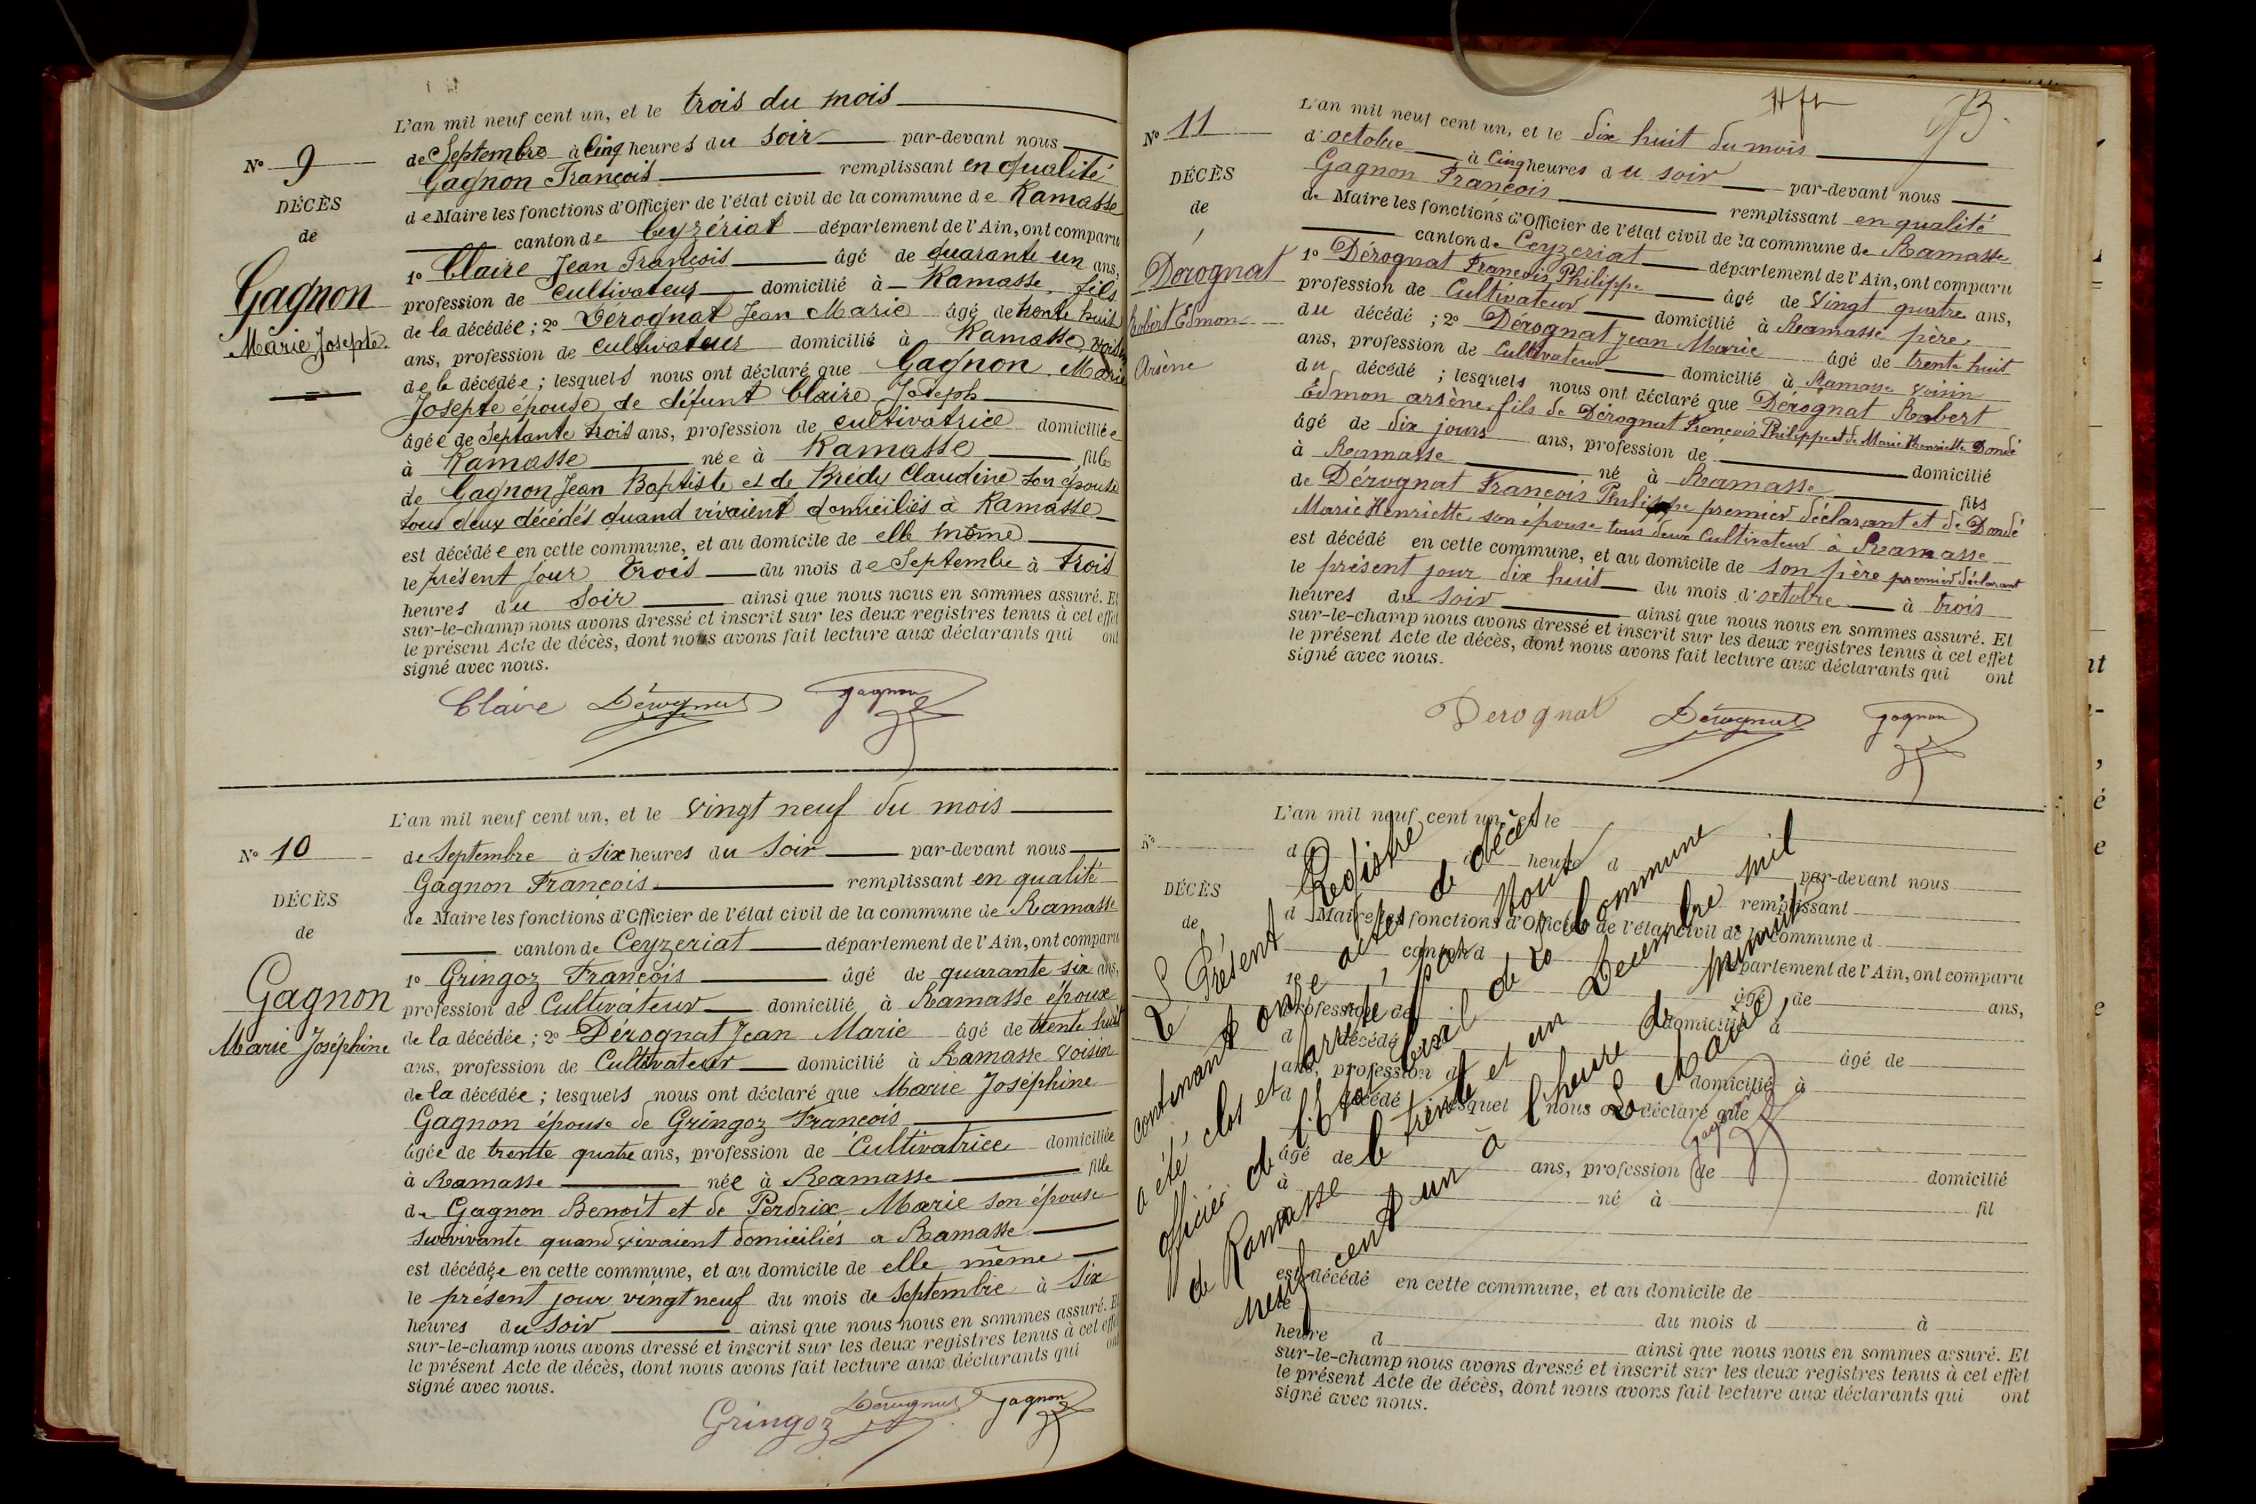 N° 9
DÉCÈS
de
Gagnon
Marie Josepte.
L'an mil neuf cent un, et le trois du mois
de Septembre à Cinq heures du soir par-devant nous
Gagnon François remplissant en qualité
de Maire les fonctions d'Officier de l'état civil de la commune de Ramasse
canton de Ceyzériat département de l'Ain, ont comparu
1° Claire Jean François âgé de quarante un ans,
profession de cultivateur domicilié à Ramasse, fils
de la décédée ; 2° Dérognat Jean Marie âgé de trente huit
ans, profession de cultivateur domicilié à Ramasse, voisin
de la décédée ; lesquels nous ont déclaré que Gagnon Marie
Josepte épouse de défunt Claire Joseph
âgée de Septante trois ans, profession de cultivatrice domiciliée
à Ramasse née à Ramasse fille
de Gagnon Jean Baptiste et de Brédy Claudine son épouse
tous deux décédés quand vivaient domiciliés à Ramasse
est décédée en cette commune, et au domicile de elle même
le présent jour trois du mois de Septembre à trois
heures du Soir ainsi que nous nous en sommes assuré. Et
sur-le-champ nous avons dressé et inscrit sur les deux registres tenus à cet effet
le présent Acte de décès, dont nous avons fait lecture aux déclarants qui ont
signé avec nous.
Claire Dérognat gagnon
N° 10
DÉCÈS
de
Gagnon
Marie Joséphine
L'an mil neuf cent un, et le vingt neuf du mois
de Septembre à six heures du Soir par-devant nous
Gagnon François remplissant en qualité
de Maire les fonctions d'Officier de l'état civil de la commune de Ramasse
canton de Ceyzeriat département de l'Ain, ont comparu
1° Gringoz François âgé de quarante six ans,
profession de Cultivateur domicilié à Ramasse époux
de la décédée ; 2° Dérognat Jean Marie âgé de trente huit
ans, profession de Cultivateur domicilié à Ramasse voisin
de la décédée ; lesquels nous ont déclaré que Marie Joséphine
Gagnon épouse de Gringoz François
âgée de trente quatre ans, profession de Cultivatrice domiciliée
à Ramasse née à Ramasse fille
de Gagnon Benoît et de Perdrix Marie son épouse
survivante quand vivaient domiciliés a Ramasse
est décédée en cette commune, et au domicile de elle même
le présent jour vingt neuf du mois de septembre à six
heures du soir ainsi que nous nous en sommes assuré. Et
sur-le-champ nous avons dressé et inscrit sur les deux registres tenus à cet effet
le présent Acte de décès, dont nous avons fait lecture aux déclarants qui ont
signé avec nous.
Gringoz Dérognat gagnon
N° 11
DÉCÈS
de
Dérognat
Robert Edmon
Arsène
L'an mil neuf cent un, et le dix huit du mois
d'octobre à Cinq heures du soir par-devant nous
Gagnon François remplissant en qualité
de Maire les fonctions d'Officier de l'état civil de la commune de Ramasse
canton de Ceyzeriat département de l'Ain, ont comparu
1° Dérognat François Philippe âgé de vingt quatre ans,
profession de Cultivateur domicilié à Ramasse père
du décédé ; 2° Dérognat Jean Marie âgé de trente huit
ans, profession de Cultivateur domicilié à Ramasse voisin
du décédé ; lesquels nous ont déclaré que Dérognat Robert
Edmon arsène, fils de Dérognat François Philippe et de Marie Henriette Dondé
âgé de dix jours ans, profession de domicilié
à Ramasse né à Ramasse fils
de Dérognat François Philippe premier déclarant et de Dondé
Marie Henriette son épouse tous deux Cultivateurs à Ramasse
est décédé en cette commune, et au domicile de son père premier déclarant
le présent jour dix huit du mois d'octobre à trois
heures du soir ainsi que nous nous en sommes assuré. Et
sur-le-champ nous avons dressé et inscrit sur les deux registres tenus à cet effet
le présent Acte de décès, dont nous avons fait lecture aux déclarants qui ont
signé avec nous.
Derognat Dérognat gagnon
N°
DÉCÈS
de
L'an mil neuf cent un, et le
d à heure d par-devant nous
remplissant
d Maire les fonctions d'Officier de l'état civil de la commune d
canton d département de l'Ain, ont comparu
1° âgé de ans,
profession de domicilié à
d décédé âgé de
ans, profession d domicilié à
d décédé lesquel nous ont déclaré que
âgé de ans, profession de domicilié
à né à fil
d
est décédé en cette commune, et au domicile de
le du mois d à
heure d ainsi que nous nous en sommes assuré. Et
sur-le-champ nous avons dressé et inscrit sur les deux registres tenus à cet effet
le présent Acte de décès, dont nous avons fait lecture aux déclarants qui ont
signé avec nous.
Le Présent Registre
contenant onze actes de décès
a été clos et arrêté par Nous
officier de l'État Civil de la Commune
de Ramasse le trente et un Décembre mil
neuf cent un à l'heure de minuit
Le Maire,
gagnon